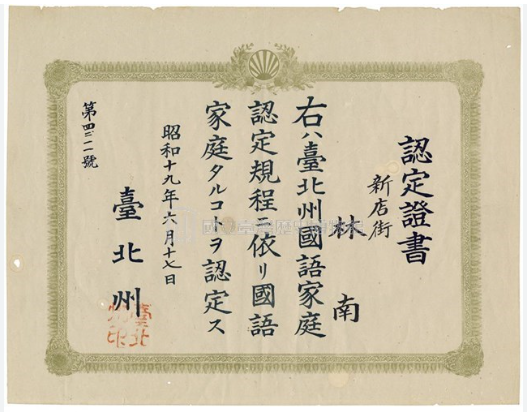 認定證書
新店街
林 南
右ハ臺北州國語家庭
認定規程ニ依リ國語
家庭タルコトヲ認定ス
昭和十九年六月十七日
臺北州
第四二一號